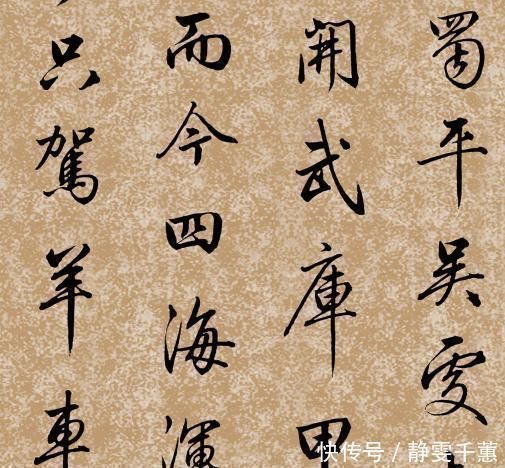 蜀平吳
開武庫
而今四海渾
只駕羊車
快传号 / 静雯千蕙